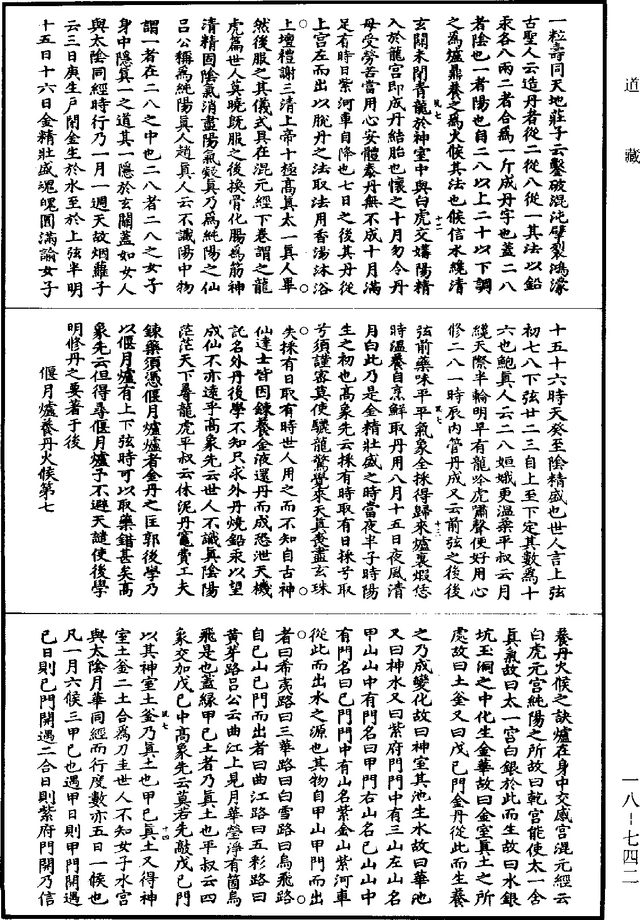 道藏
一粒壽同天地莊子云鑿破混沌擘裂鴻濛
古聖人云造丹者從二從八從一其法以鉛
汞各八兩二者合為一斤成丹字也蓋二八
者陰也一者陽也自二八以上二十以下調
之為爐鼎養之為火候其法也候信水纔清
玄關未閉青龍於神室中與白虎交媾陽精
入於龍宮即成丹結胎也懷之十月勿令丹
母受勞苦當用心安體養丹無不成十月滿
足有時日紫河車自降也七日之後其丹從
上宮左而出以脫丹之法取法用香湯沐浴
上壇禮謝三清上帝十極高真太一真人畢
然後服之其儀式具在混元經下卷謂之龍
虎篇世人莫曉既服之後換骨化腸為筋神
清精固陰氣消盡陽氣殼真乃為純陽之仙
呂公稱為純陽真人趙真人云不識陽中物
謂一者在二八之中也二八者二八之女子
身中隱真一之道其一隱於玄關蓋如女人
與太陰同經時行乃一月一週天故烟蘿子
云三日庚生戶開金生於水至於上弦半明
十五日十六日金精壯盛魂魄圓滿諭女子
十五十六時天癸至陰精盛也世人言上弦
初七八下弦廿二三自上至下定其數為十
六也鮑真人云二八姮娥更溫柔平叔云月
纔天際半輪明早有龍吟虎嘯聲便好用心
修二八一時辰內管丹成又云前弦之後後
弦前藥味平平氣象全採得歸來爐裏煆恁
時溫養自烹鮮取丹用八月十五日夜風清
月白此乃是金精壯盛之時當夜半子時陽
生之初也高象先云採有時取有日採兮取
兮須謹密莫使驪龍驚覺來天真喪盡玄珠
失採有日取有時世人用之而不知自古神
仙達士皆因鍊養金液還丹而成恐泄天機
記名外丹後學不知只求外丹燒鉛汞以望
成仙不亦遠乎高象先云世人不識真陰陽
茫茫天下尋龍虎平叔云休泥丹竈費工夫
鍊藥須憑偃月爐爐者金丹之匡郭後學乃
以偃月爐有上下弦時可以取藥錯甚矣高
象先云但得尋偃月爐子不避天譴使後學
明修丹之要著于後
偃月爐養丹火候第七
養丹火候之訣爐在身中交感宮混元經云
白虎元宮純陽之所故曰乾宮能使太一含
真氣故曰太一宮白銀於此而生故曰水銀
坑玉洞之中化生金華故曰金室真土之所
處故曰土釜又曰戊己門金丹從此而生養
之乃成變化故曰神室其池生水故曰華池
又曰神水又曰紫府門門中有三山左山名
甲山山中有門名曰甲門右山名己山山中
有門名曰己門門中有山名紫金山紫河車
從此而出水之源也其物自甲山甲門而出
者曰希夷路曰三華路曰白雪路曰烏飛路
自己山己門而出者曰曲江路曰五彩路曰
黃芽路呂公云曲江上見月華瑩淨有箇烏
飛是也蓋緣甲己土者乃真土也平叔云四
象交加戊己中高象先云莫若先敲戊己門
以其神室土釜乃真土也甲己真土又得神
室土釜二土合為刀圭世人不知女子水宮
與太陰月華同經而行度數亦五日一候也
凡一月六候三甲己也遇甲日則甲門開遇
己日則己門開遇二合日則紫府門開乃信
一八-七四二